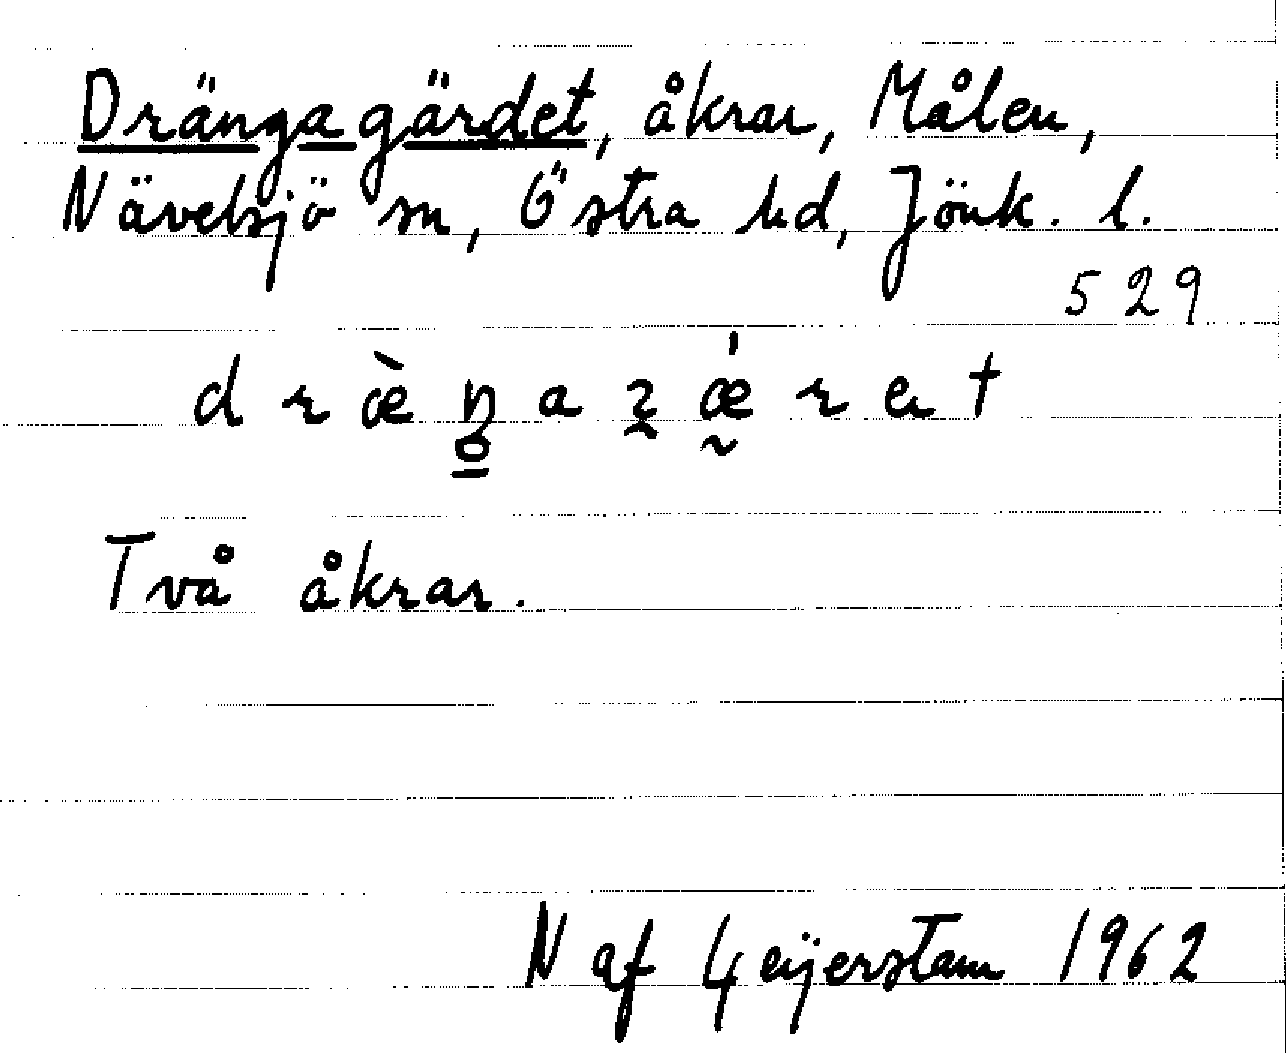 Drängagärdet, åkrar, Målen,
Nävelsjö sn, Östra hd, Jönk. l.
529
Två åkrar.
N af Geijerstam 1962